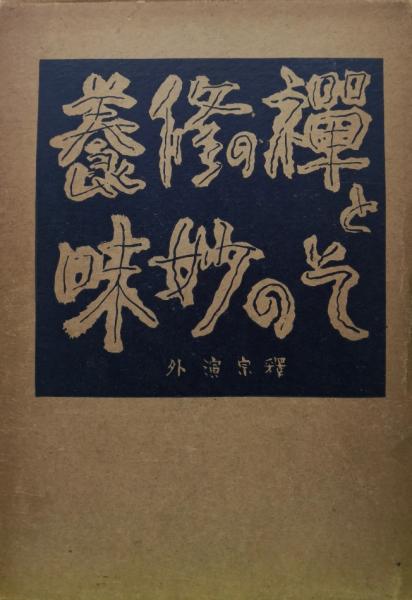 禪の修養
と
その妙味
釋宗演外